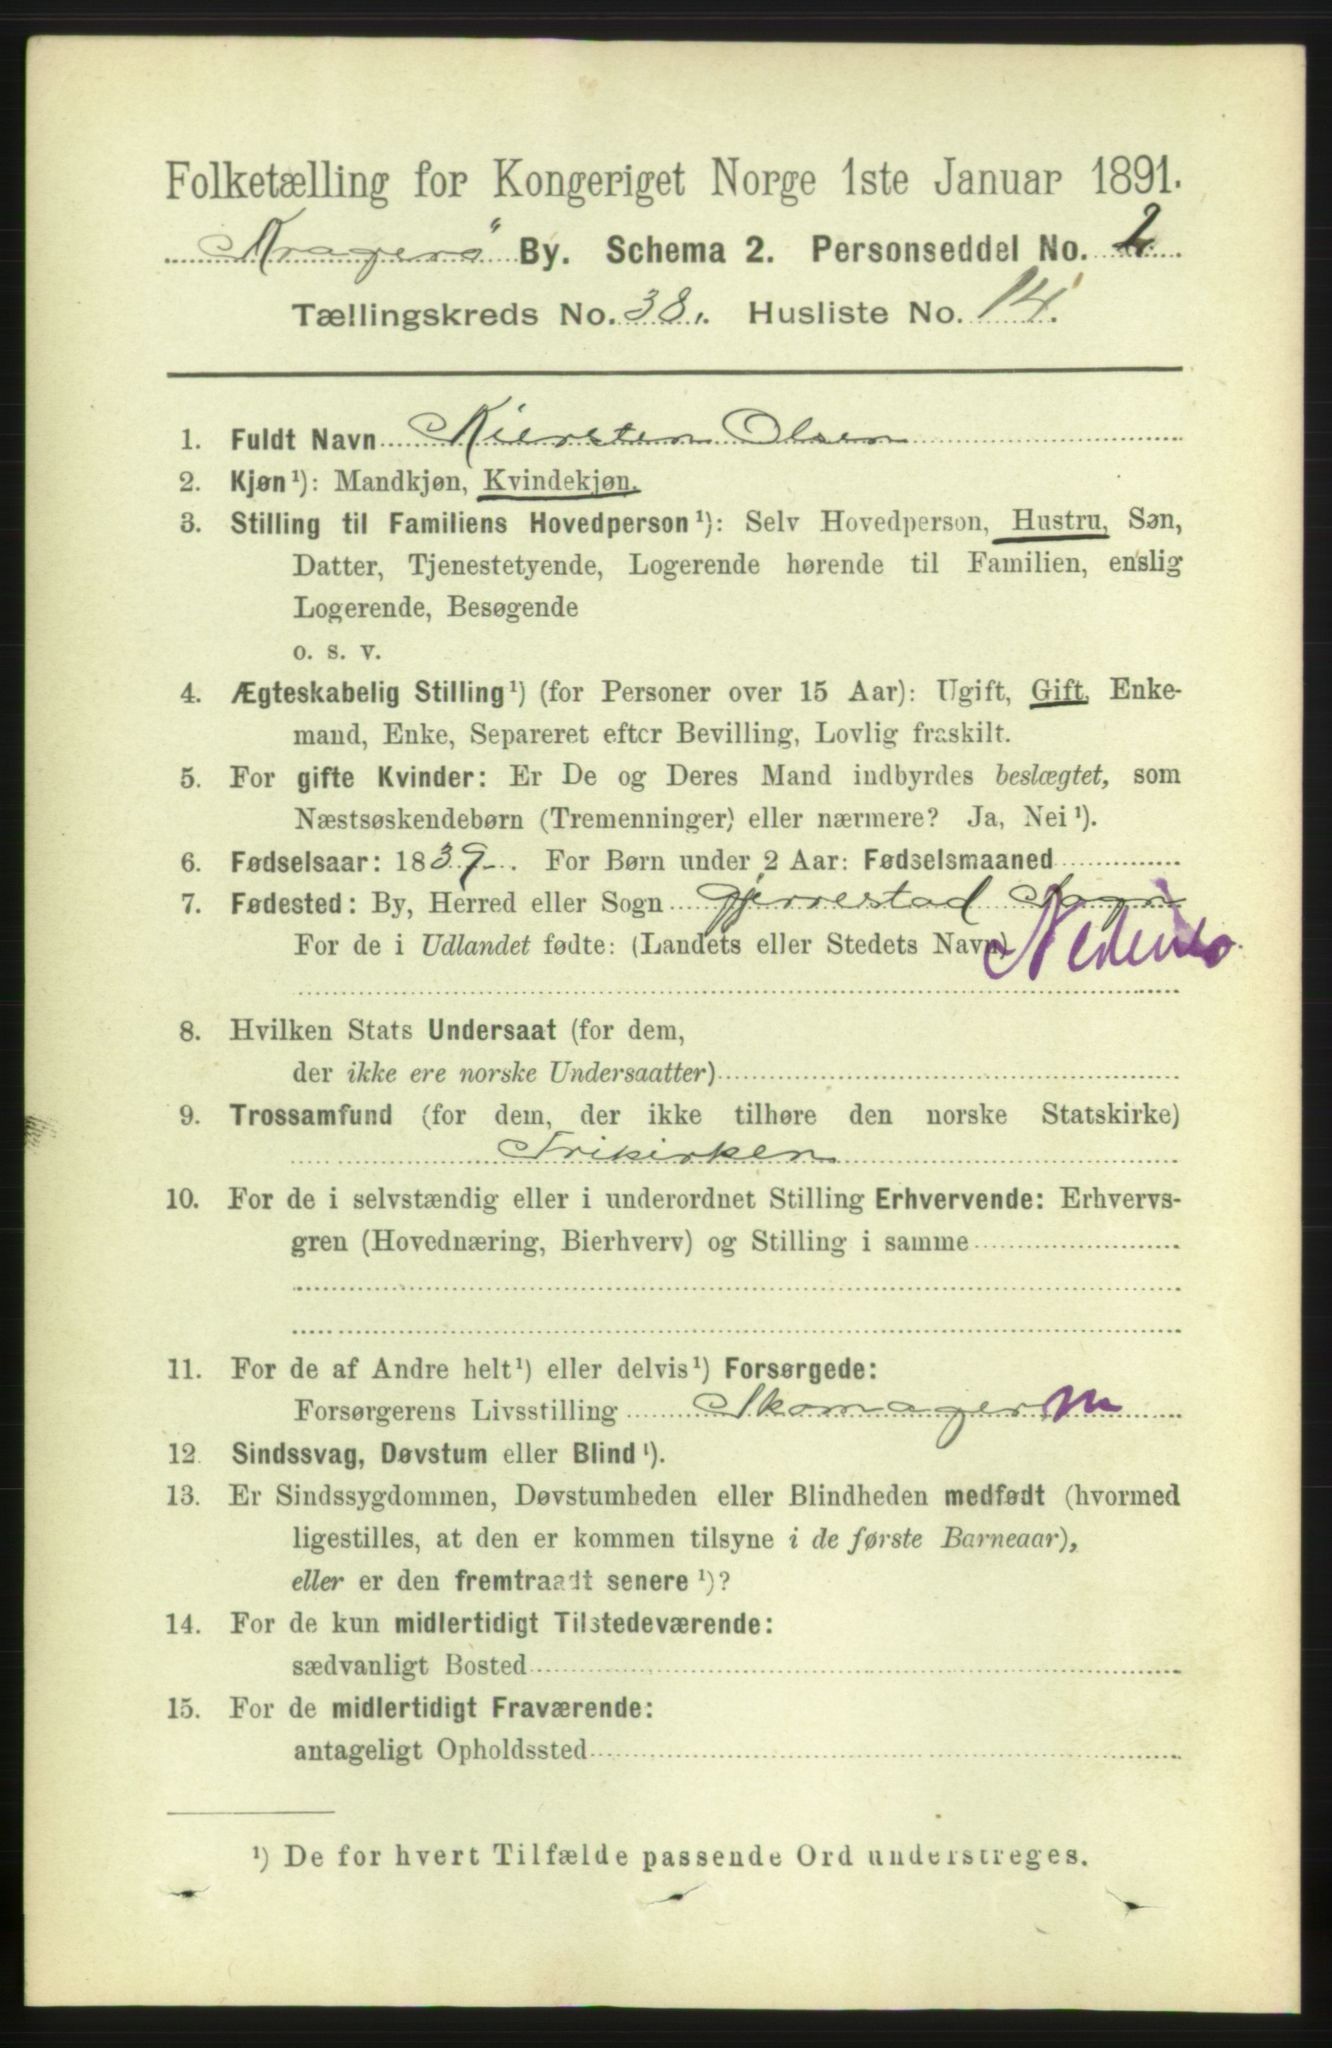 Folketælling for Kongeriget Norge 1ste Januar 1891.
Kragerö By. Schema 2. Personseddel No. 2
Tællingskreds No. 38. Husliste No. 14.
1. Fuldt Navn Kiersten Olsen
2. Kjøn¹): Mandkjøn, Kvindekjøn.
3. Stilling til Familiens Hovedperson¹): Selv Hovedperson, Hustru, Søn,
Datter, Tjenestetyende, Logerende hørende til Familien, enslig
Logerende, Besøgende
o. s. v.
4. Ægteskabelig Stilling¹) (for Personer over 15 Aar): Ugift, Gift, Enke-
mand, Enke, Separeret efter Bevilling, Lovlig fraskilt.
5. For gifte Kvinder: Er De og Deres Mand indbyrdes beslægtet, som
Næstsøskendebørn (Tremenninger) eller nærmere? Ja, Nei¹).
6. Fødselsaar: 1839. For Børn under 2 Aar: Fødselsmaaned
7. Fødested: By, Herred eller Sogn Gjerrestad Sogn
For de i Udlandet fødte: (Landets eller Stedets Navn) Nedenes.
8. Hvilken Stats Undersaat (for dem,
der ikke ere norske Undersaatter)
9. Trossamfund (for dem, der ikke tilhøre den norske Statskirke)
Frikirken
10. For de i selvstændig eller i underordnet Stilling Erhvervende: Erhvervs-
gren (Hovednæring, Bierhverv) og Stilling i samme
11. For de af Andre helt¹) eller delvis¹) Forsørgede:
Forsørgerens Livsstilling Skomager m
12. Sindssvag, Døvstum eller Blind¹).
13. Er Sindssygdommen, Døvstumheden eller Blindheden medfødt (hvormed
ligestilles, at den er kommen tilsyne i de første Barneaar),
eller er den fremtraadt senere¹)?
14. For de kun midlertidigt Tilstedeværende:
sædvanligt Bosted
15. For de midlertidigt Fraværende:
antageligt Opholdssted
¹) De for hvert Tilfælde passende Ord understreges.